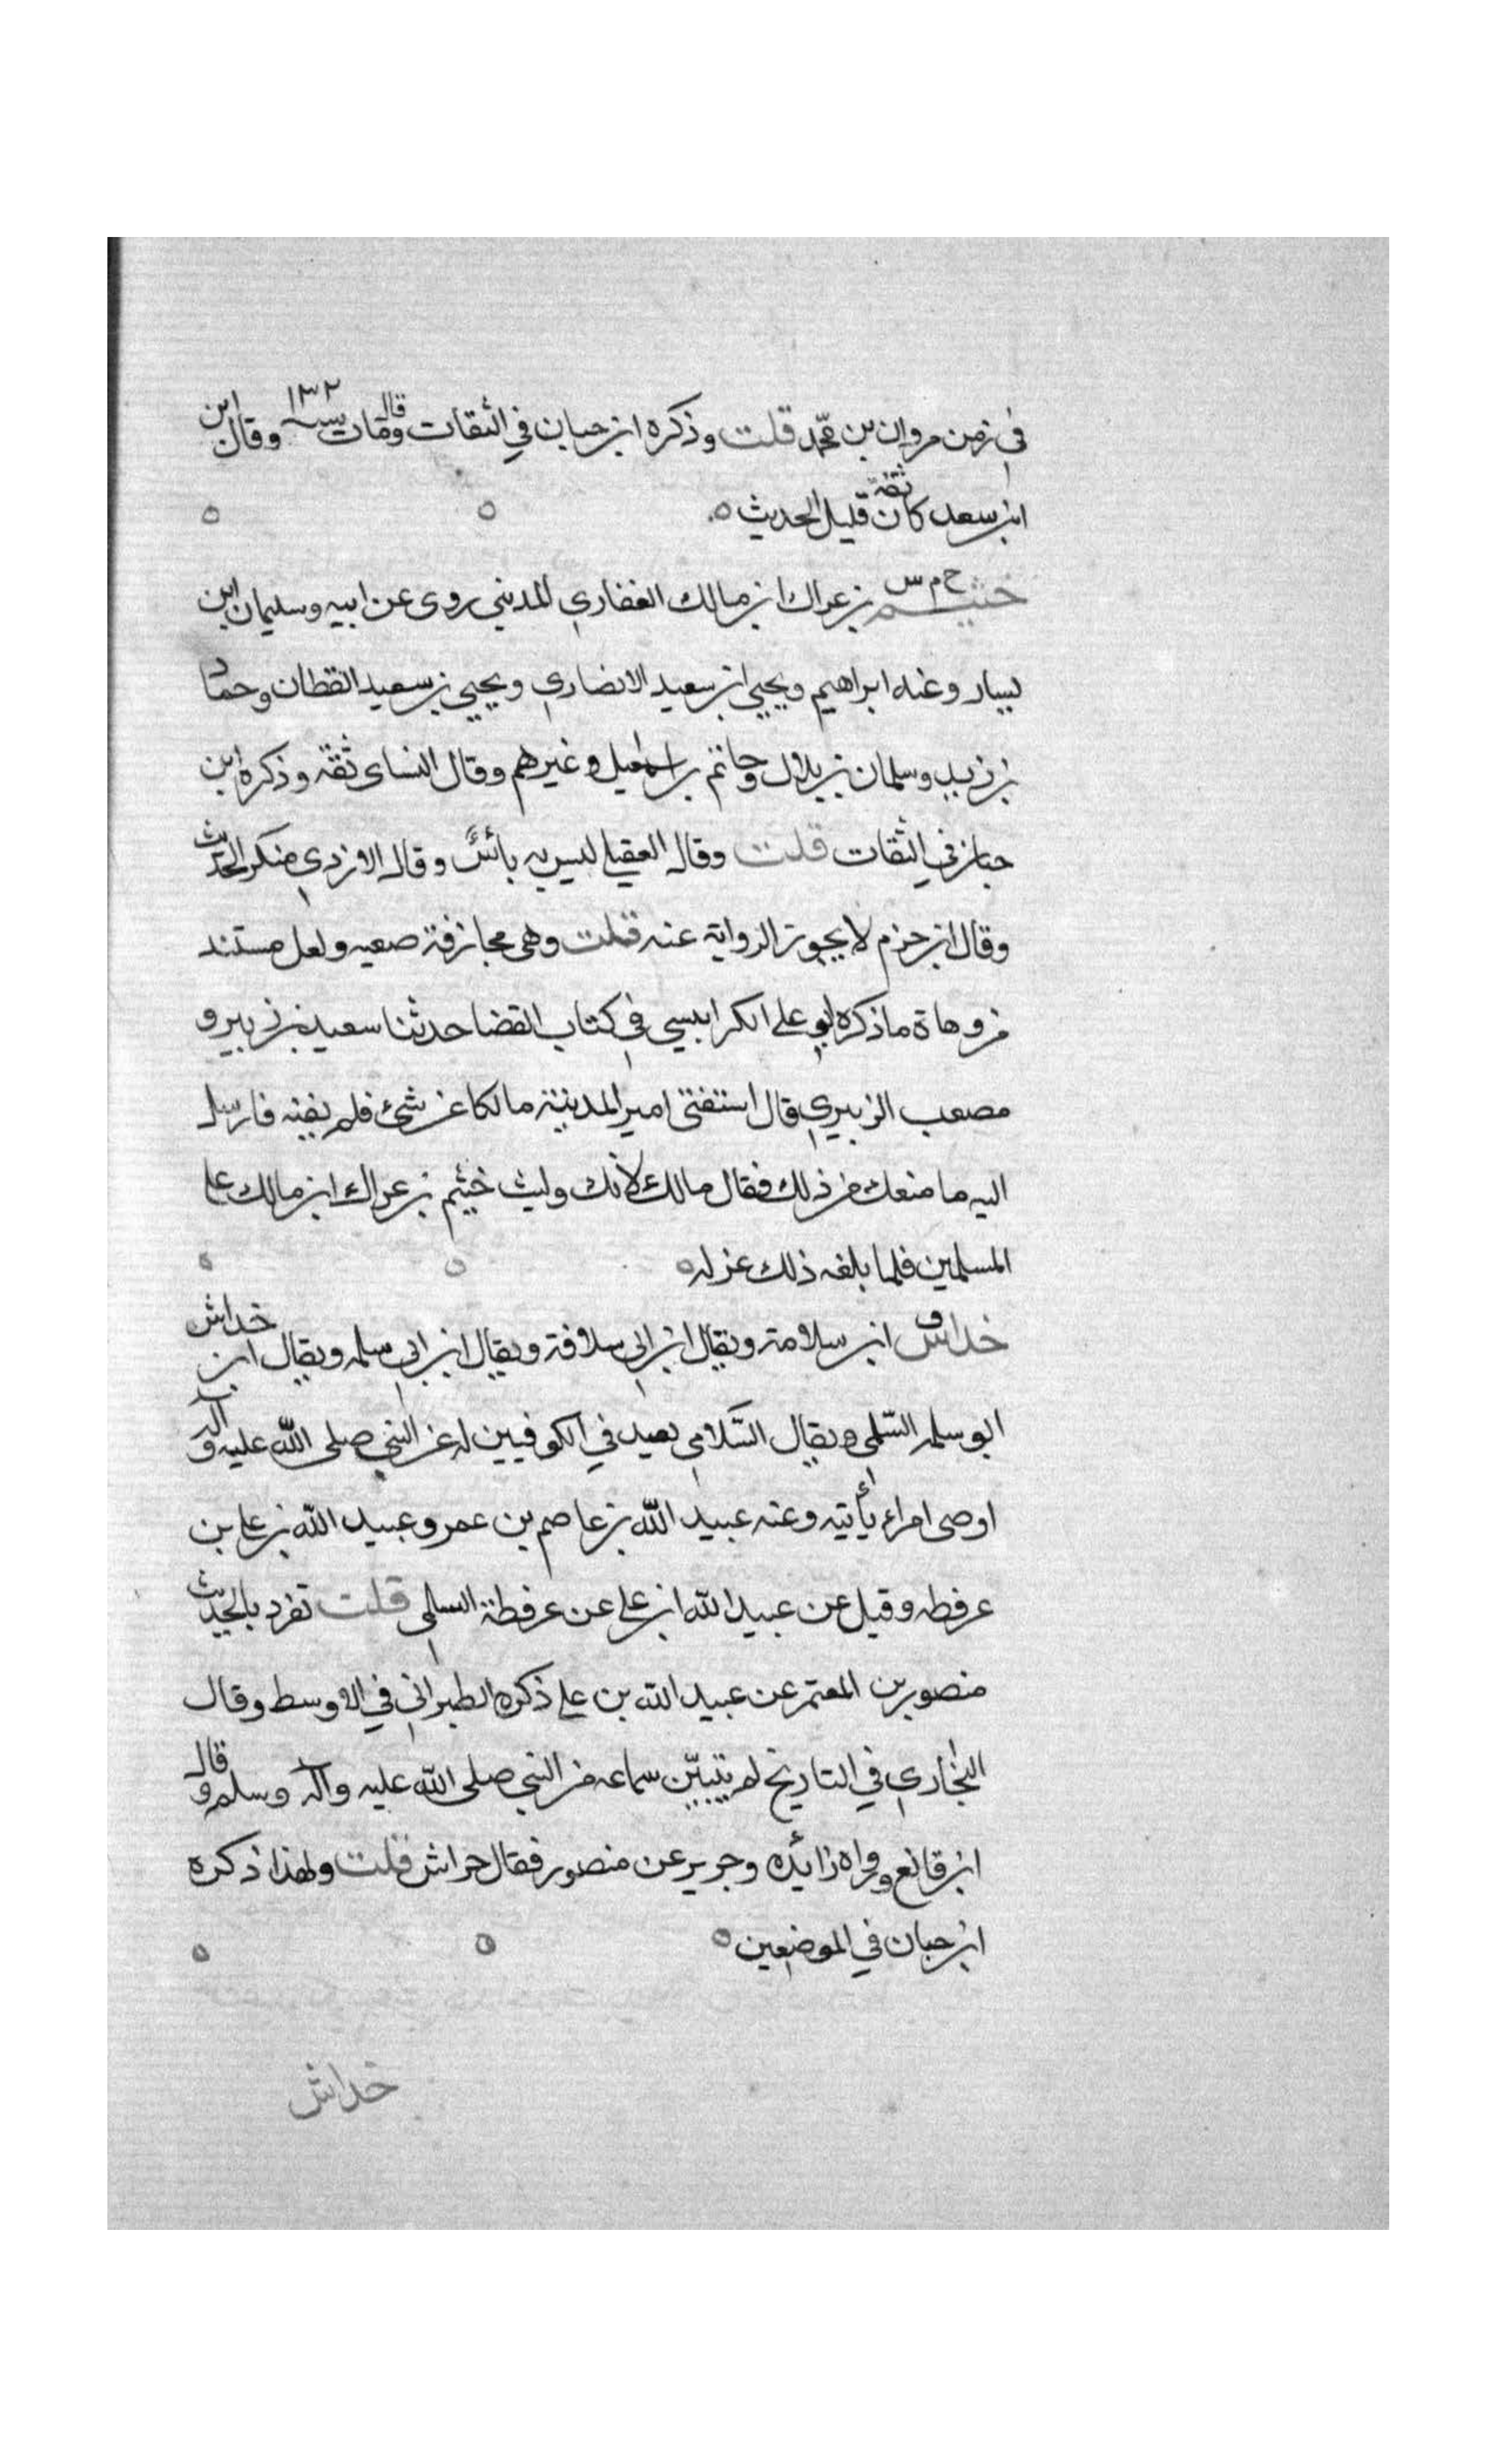 في زمن مروان بن محمد قلت وذكره ابن حبان في الثقات وقال مات سنة ١٣٢ وقال ابن
ابن سعد كان ثقة قليل الحديث ه
خثيم خ م س بن عراك ابن مالك الغفاري المديني روى عن ابيه وسليمان ابن
يسار وعنه ابراهيم ويحيى ابن سعيد الانصاري ويحيى بن سعيد القطان وحماد
بن زيد وسلمان بن بلال وحاتم بن اسمعيل وغيرهم وقال النساى ثقة وذكره ابن
حبان في الثقات قلت وقال العقيلي ليس به بأس وقال الازدي منكر الحديث
وقال ابن حزم لا يجوز الرواية عنه قلت وهي مجازفة صعبه ولعل مستند
من وهاة ما ذكره ابو علي الكرابيسي في كتاب القضا حدثنا سعيد بن زبير و
مصعب الزبيري قال استفتى امير المدينة مالكا عن شئ فلم يفته فارسل
اليه ما منعك من ذلك فقال مالك لانك وليت خثيم بن عراك ابن مالك على
المسلمين فلما بلغه ذلك عزله ه
خداش ق ابن سلامة ويقال ابن ابي سلامة ويقال ابن ابي سلمه ويقال ابن خداش
ابو سلمه السلمي ويقال السلامي يعيد في الكوفيين له عن النبي صلى الله عليه وآله
اوصى امراء بأبيه وعنه عبيد الله بن عاصم بن عمر وعبيد الله بن علي بن
عرفطه وقيل عن عبيد الله ابن علي عن عرفطة السلمي قلت تفرد بالحديث
منصور بن المعتمر عن عبيد الله بن علي ذكره الطبراني في الاوسط وقال
البخاري في التاريخ لم يتبين سماعه من النبي صلى الله عليه وآله وسلم وقال
ابن قانع ورواه زائده وجرير عن منصور فقال حراش قلت ولهذا ذكره
ابن حبان في الموضعين ه
خداش